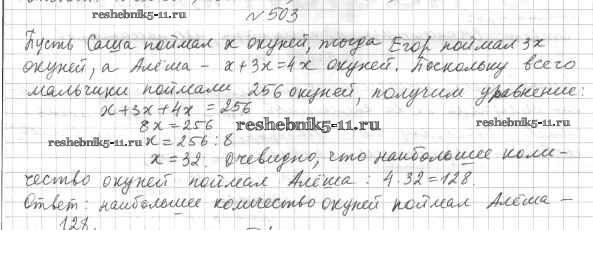 reshebnik5-11.ru №503
Пусть Саша поймал x окуней, тогда Егор поймал 3x
окуней, а Алёша - x+3x=4x окуней. Поскольку всего
мальчики поймали 256 окуней, получим уравнение:
x+3x+4x = 256
8x = 256 reshebnik5-11.ru reshebnik5-11.ru
reshebnik5-11.ru x = 256 : 8
x = 32. Очевидно, что наибольшее коли-
чество окуней поймал Алёша : 4·32=128.
Ответ: наибольшее количество окуней поймал Алёша -
128.